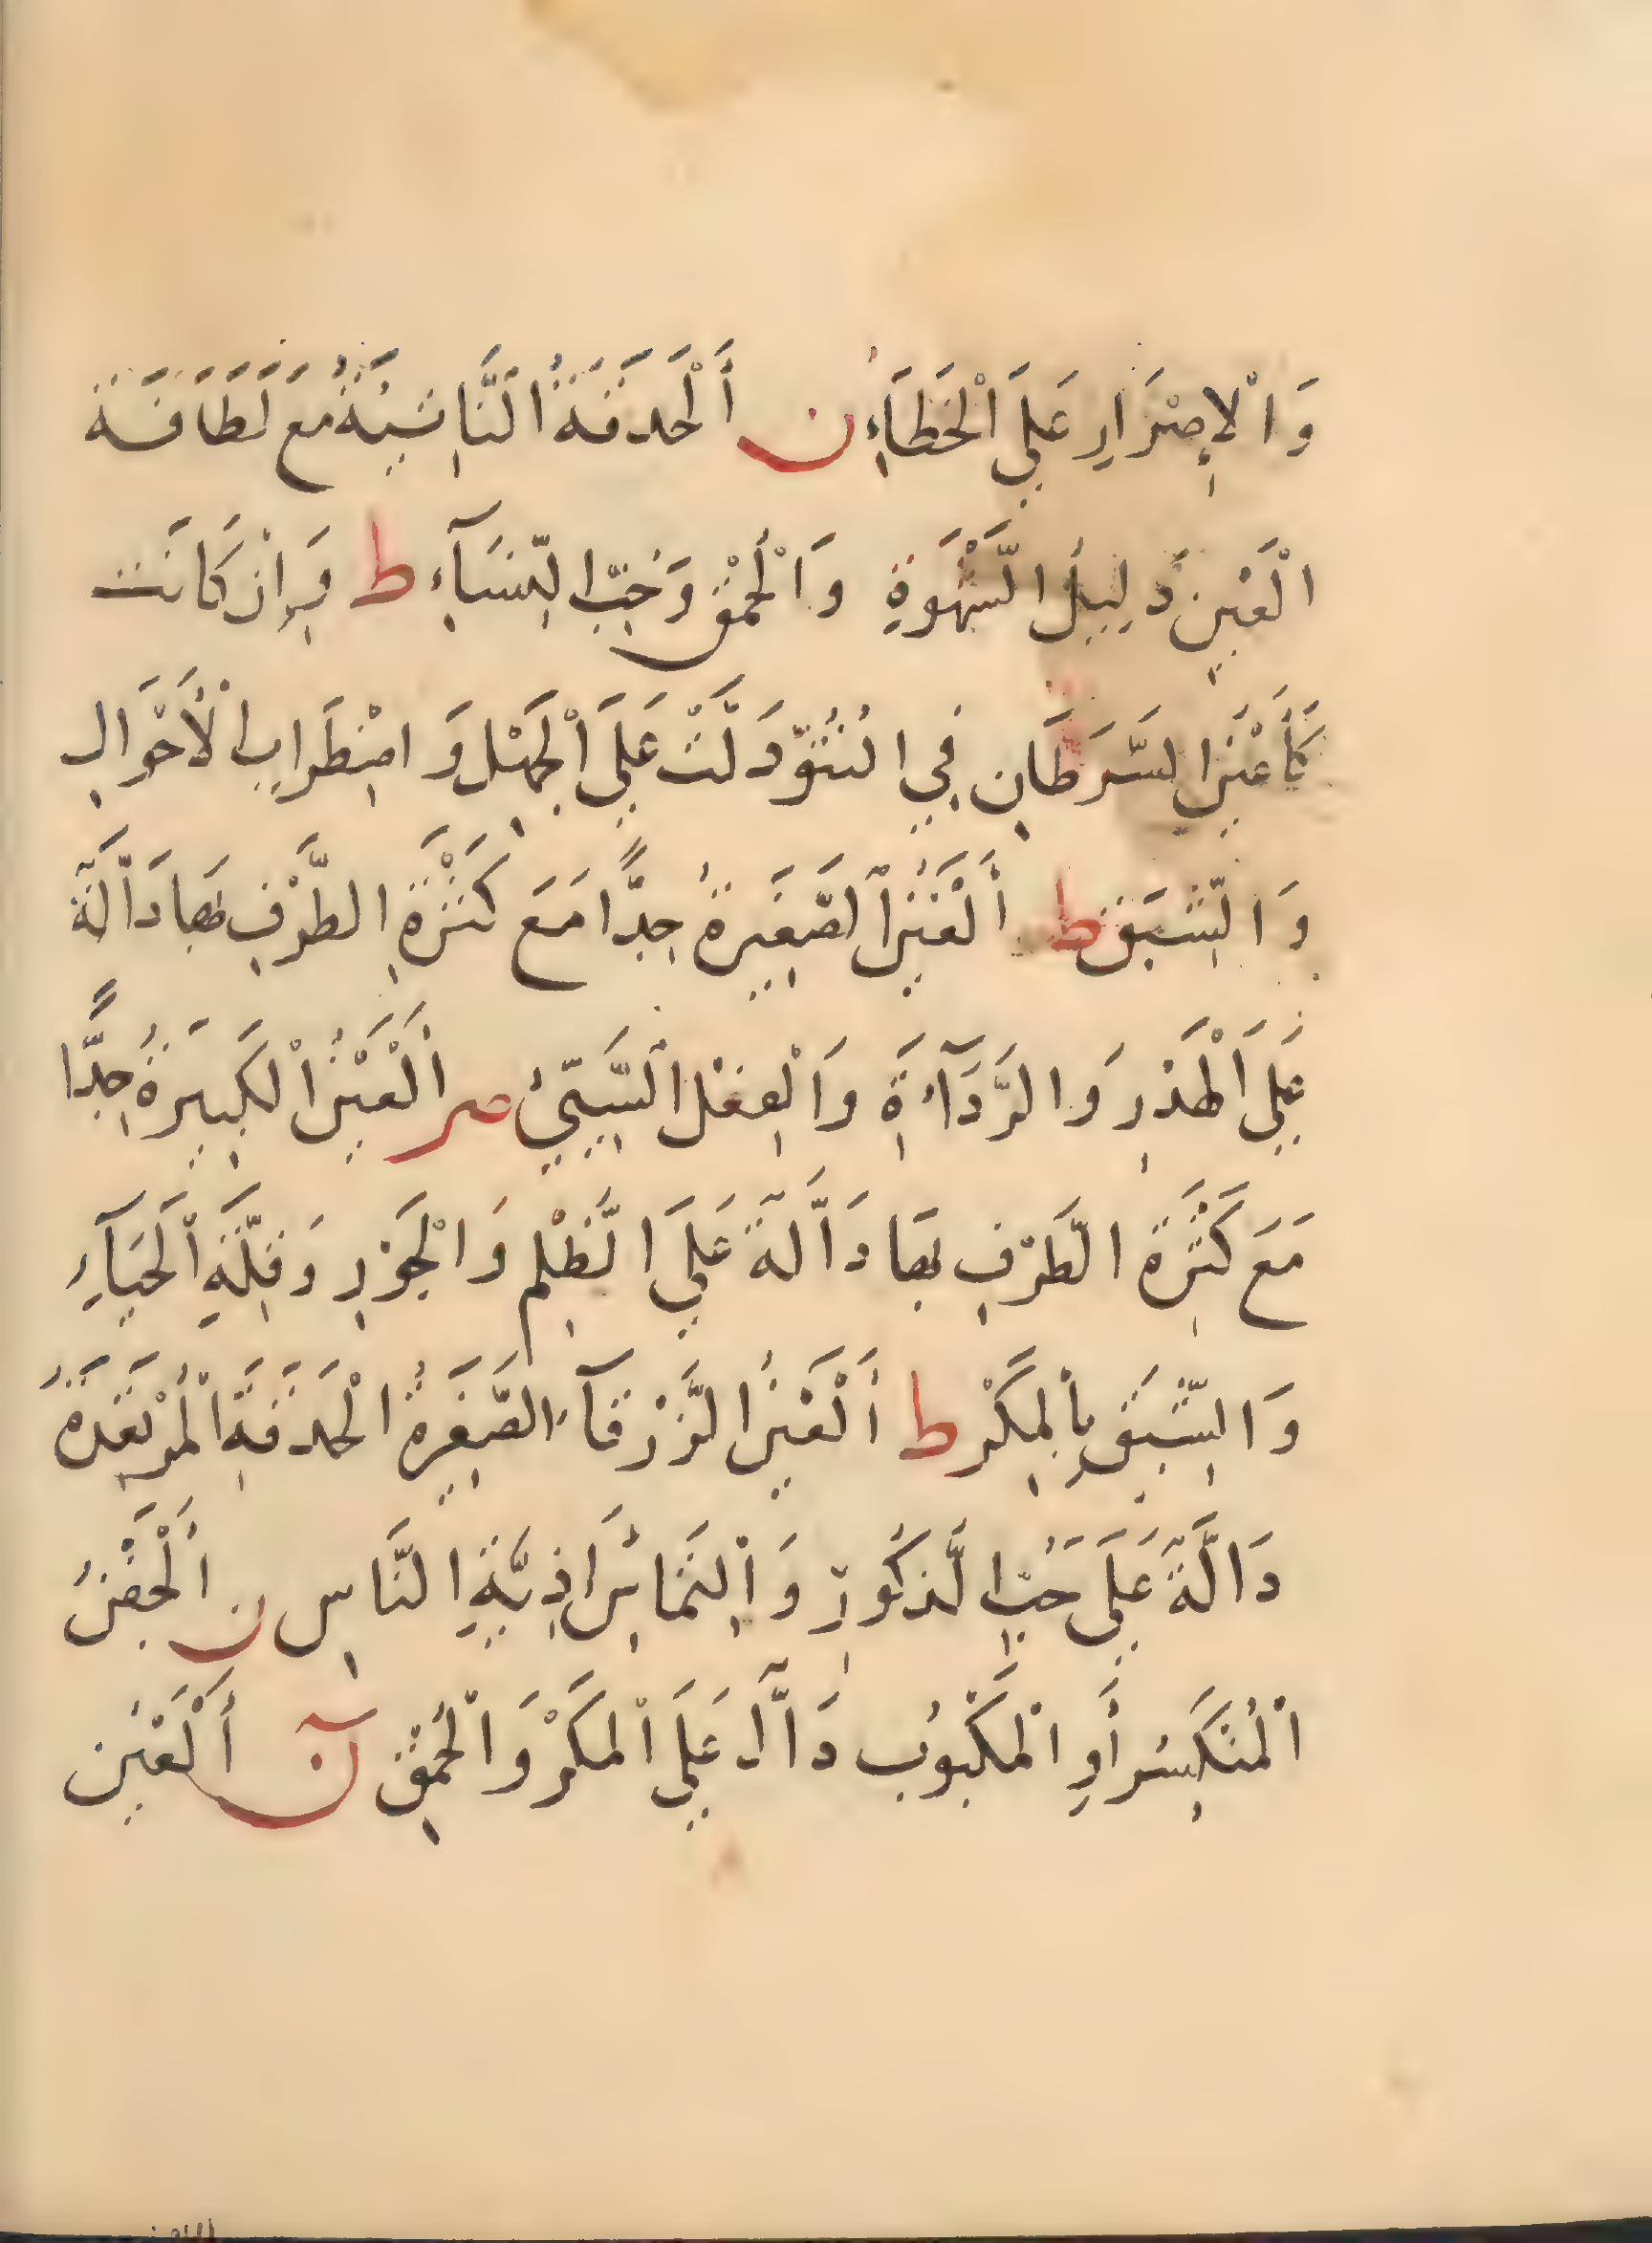 وَالْإِصْرَارِ عَلَى الْخَطَاءِ ن أَلْحَدَقَةُ النَّاشِئَةُ مع لَطَافَة
الْعَيْنِ دَلِيلُ الشَّهْوَةِ وَالْحُمْقِ وَحُبِّ النِّسَآءِ ط وَإِنْ كَانَت
كَأَعْيُنِ السَّرَطَانِ فِي النُتُوِّ دَلَّتْ عَلَى الْجَهْلِ وَاضْطِرَابِ الْأَحْوَالِ
وَالشَّبَقِ ط أَلْعَيْنُ الصَّغِيرَةُ جِدًّا مَعَ كَثْرَةِ الطَّرْفِ بِهَا دَآلَّة
عَلَى الْهَذَرِ وَالرَّدَآءَةِ وَالْفِعْلِ السَّيِّئِ صر أَلْعَيْنُ الْكَبِيرَةُ جِدًّا
مَعَ كَثْرَةِ الطَّرْفِ بِهَا دَآلَّة عَلَى الظُّلْمِ وَالْجَوْرِ وَقِلَّةِ الْحَيَآءِ
وَالشَّبَقِ بِالْمَكْرِ ط أَلْعَيْنُ الزَّرْقَآءُ الصَّغِرَةُ الْحَدَقَةِ الْمُرْتَعِدَة
دَالَّة عَلَى حُبِّ الذُّكُورِ وَالْتِمَاسِ اذِيَّةِ النَّاسِ ن أَلْجَفْنُ
الْمُنْكَسِر أَوِ الْمَكْبُوبُ دَآلّ عَلَى الْمَكْرِ وَالْحُمْقِ ن أَلْعَيْن